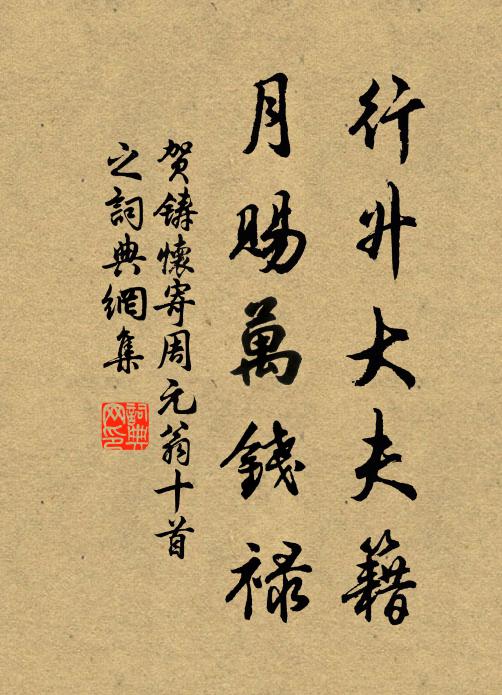 行升大夫籍
月賜萬錢祿
賀鑄懷寄周元翁十首
之詞典網集
詞典網印